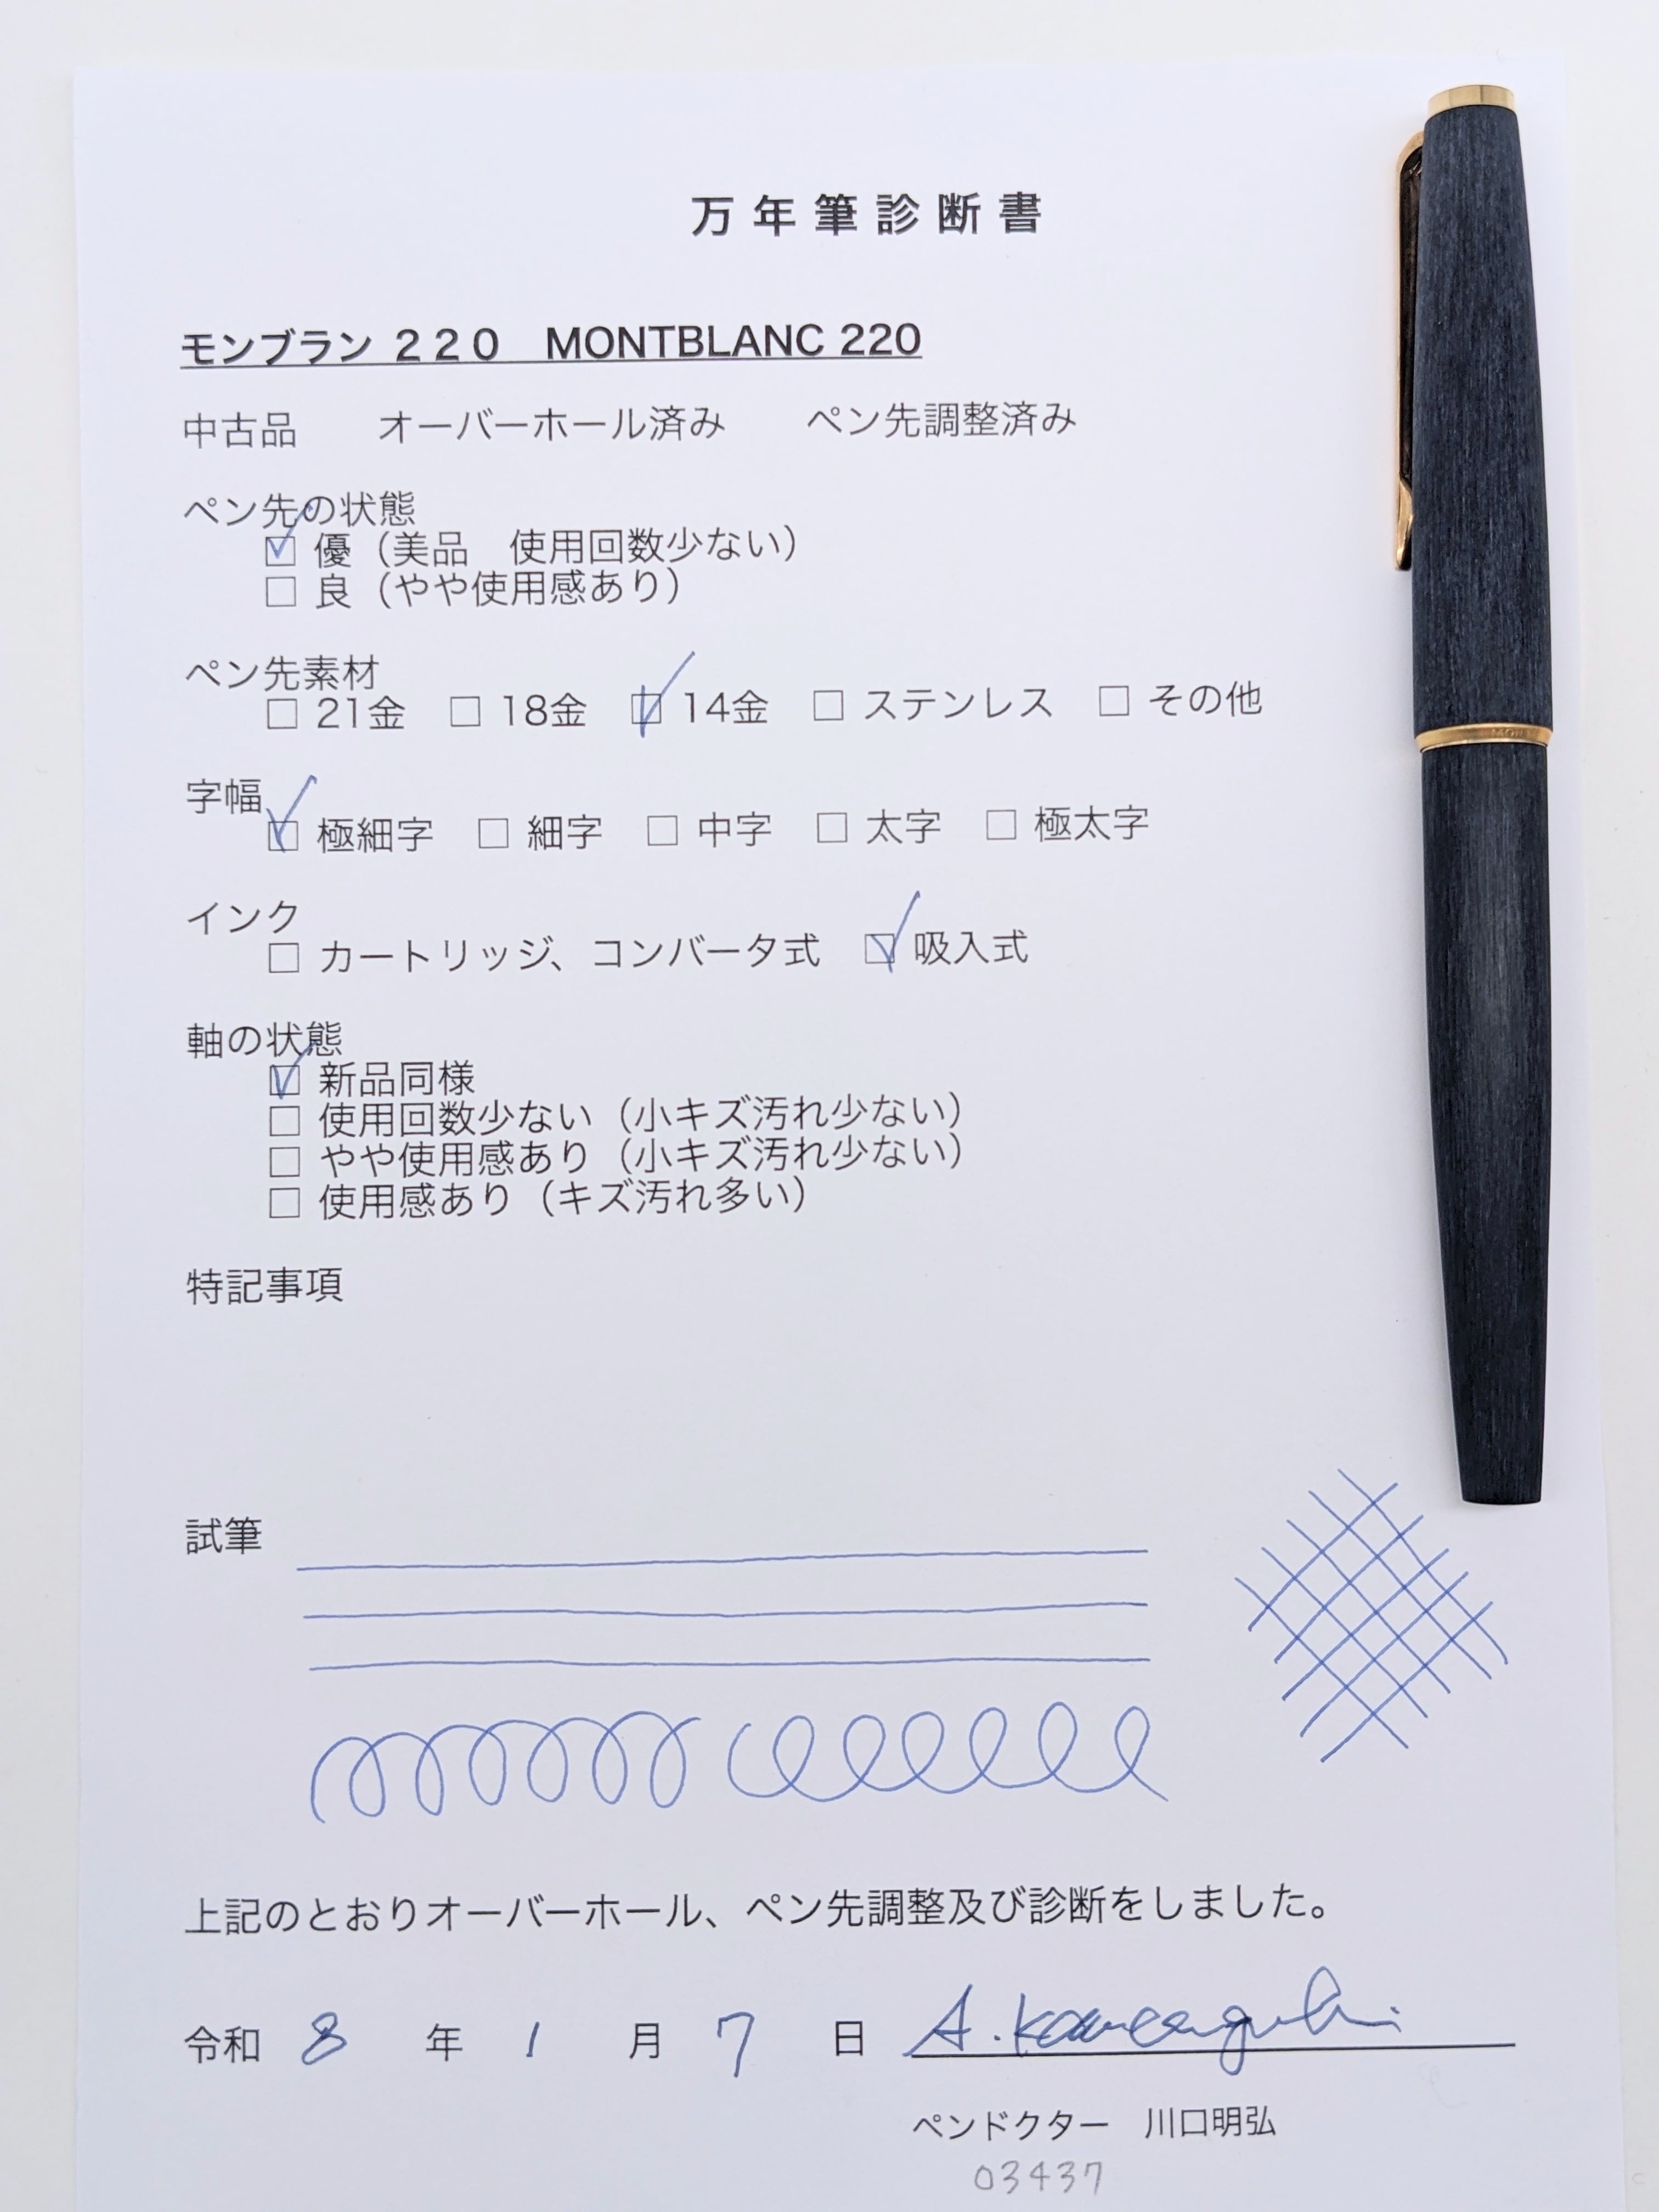 万年筆診断書
モンブラン ２２０　MONTBLANC 220
中古品　オーバーホール済み　ペン先調整済み
ペン先の状態
☑ 優（美品　使用回数少ない）
□ 良（やや使用感あり）
ペン先素材
□ 21金 □ 18金 ☑ 14金 □ ステンレス □ その他
字幅
☑ 極細字 □ 細字 □ 中字 □ 太字 □ 極太字
インク
□ カートリッジ、コンバータ式 ☑ 吸入式
軸の状態
☑ 新品同様
□ 使用回数少ない（小キズ汚れ少ない）
□ やや使用感あり（小キズ汚れ少ない）
□ 使用感あり（キズ汚れ多い）
特記事項
試筆
上記のとおりオーバーホール、ペン先調整及び診断をしました。
令和 8 年 1 月 7 日 A. Kawaguchi
ペンドクター　川口明弘
03437